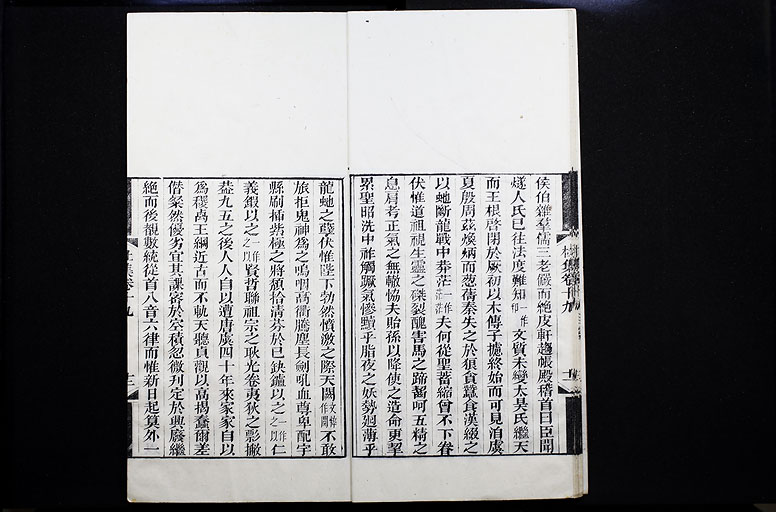 侯伯雜羣儒三老儼而絕皮軒趨帳殿稽首曰臣聞
燧人氏已往法度難知一作知文質未變太昊氏繼天
而王根啓閉於厥初以木傳子攄終始而可見洎虞
夏殷周茲煥炳而葱蒨秦失之於狼貪蠶食漢綴之
以虵斷龍戰中莽茫一作茫茫夫何從聖蓄縮曾不下眷
伏惟道祖視生靈之磔裂醜害馬之蹄齧呵五精之
息肩考正氣之無轍協夫貽孫以降使之造命更挈
累聖昭洗中祚觸蹶氣慘黷乎脂夜之妖勢迴薄乎
龍虵之孽伏惟陛下勃然憤激之際天闕文悼作闕不敢
旅拒鬼神為之嗚咽高衢騰塵長劍吼血尊卑配宇
縣刷插紫極之將頹拾清芬於已缺鑪以之一作之以仁
義鍛以之一作之以賢哲聯祖宗之耿光卷夷狄之彯撇
葢九五之後人人自以遭唐虞四十年來家家自以
為稷卨王綱近古而不軌天聽貞觀以高揭蠢爾差
僭粲然優劣宜其課密於空積忽微刋定於興廢繼
絕而後覩數統從首八音六律而惟新日起算外一
杜集卷十九